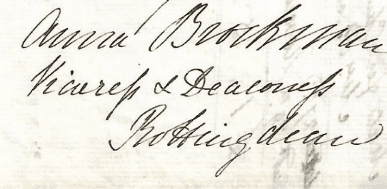 Anna Brockman
Vicaress & Deaconess
Rottingdean